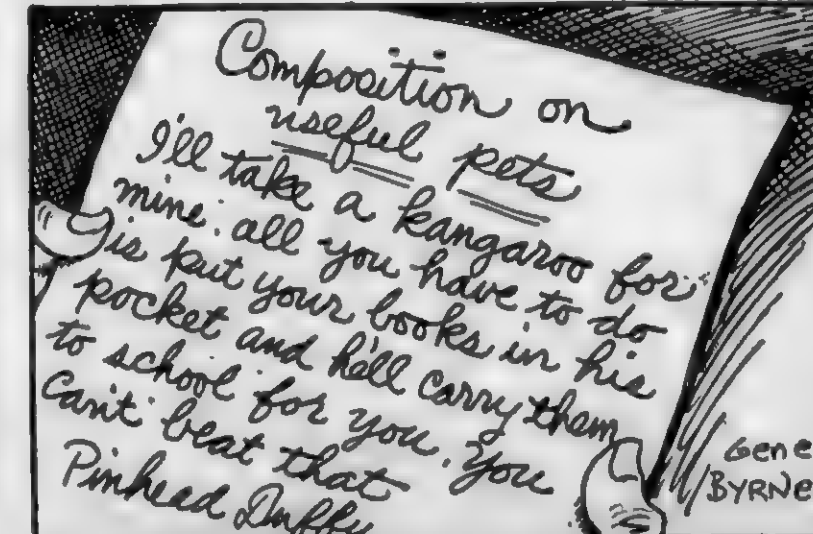 Composition on
useful pets
I'll take a kangaroo for
mine. all you have to do
is put your books in his
pocket and he'll carry them
to school for you. You
can't beat that
Pinhead Duffy
Gene
BYRNe